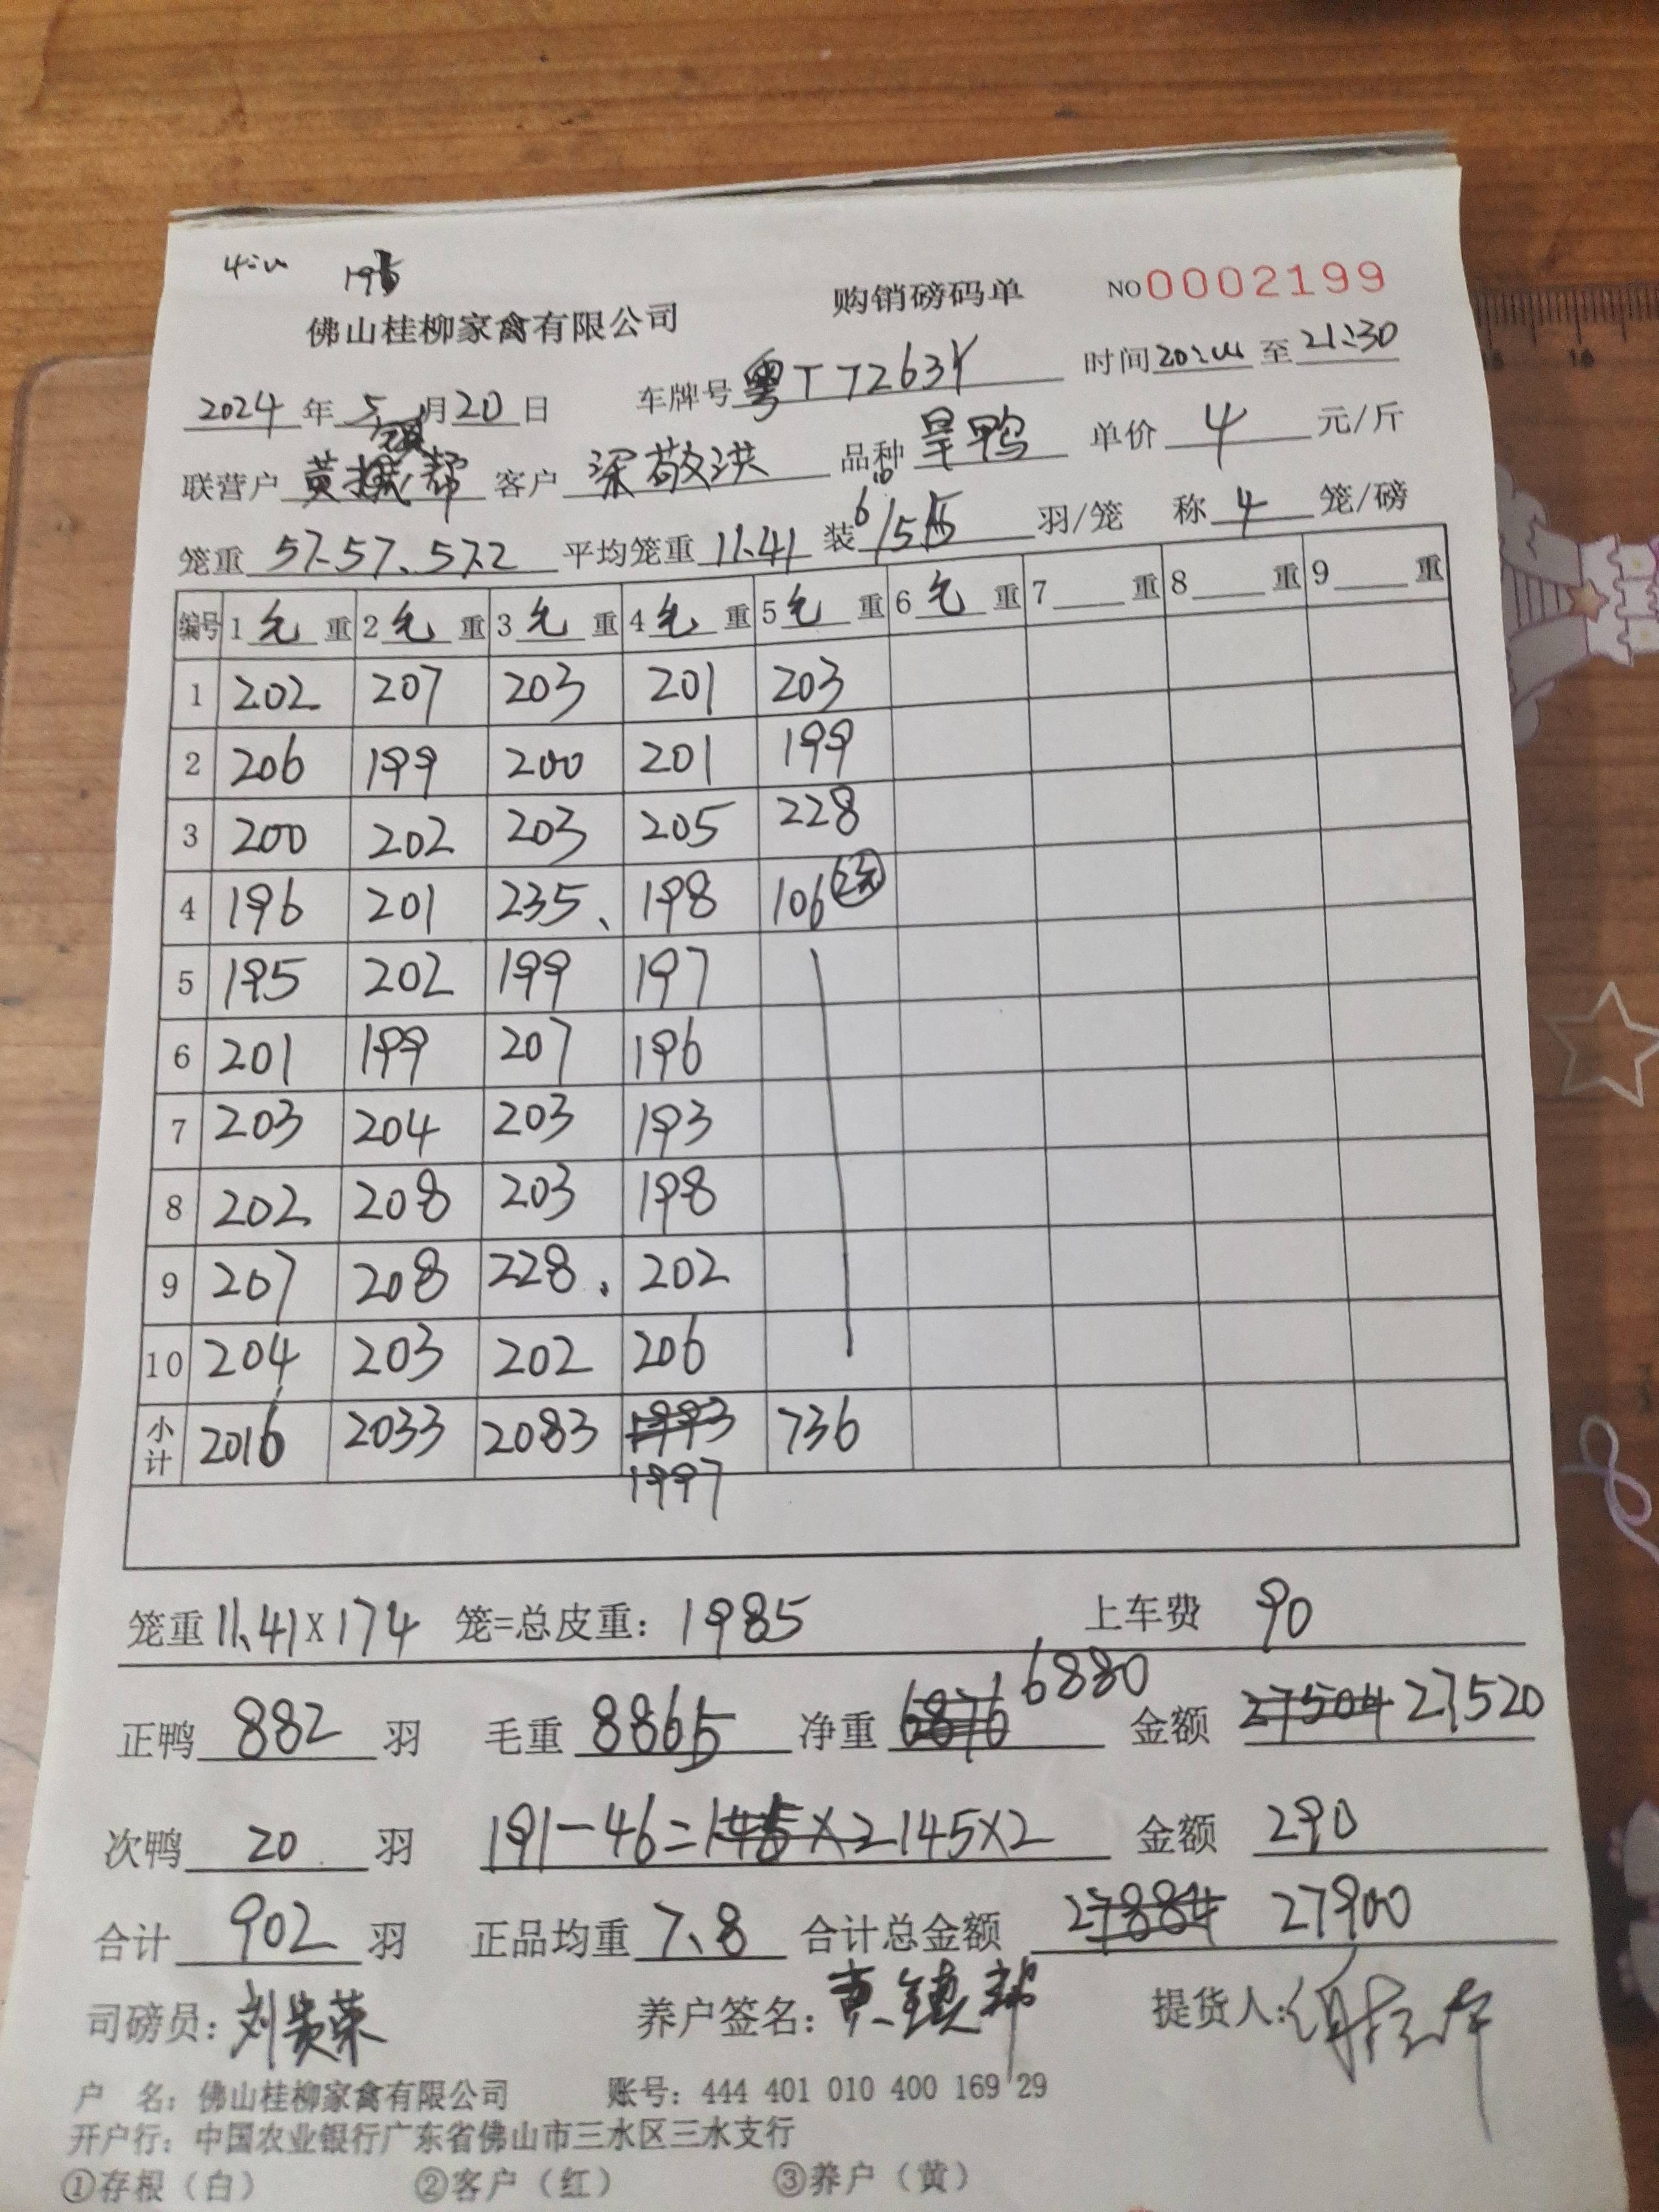 195
佛山桂柳家禽有限公司 购销磅码单 NO 0002199
2024年5月20日 车牌号 粤TT263Y 时间 20:00 至 21:30
联营户 黄镇帮 客户 梁敬洪 品种 旱鸭 单价 4 元/斤
笼重 57.57、57.2 平均笼重 11.41 装 6/5 羽/笼 称 4 笼/磅
编号 1 毛 重 2 毛 重 3 毛 重 4 毛 重 5 毛 重 6 毛 重 7 重 8 重 9 重
1 202 207 203 201 203
2 206 199 200 201 199
3 200 202 203 205 228
4 196 201 235、 198 106
5 195 202 199 197
6 201 199 207 196
7 203 204 203 193
8 202 208 203 198
9 207 208 228、 202
10 204 203 202 206
小计 2016 2033 2083 1993 736
1997
笼重 11.41×174 笼=总皮重: 1985 上车费 90
正鸭 882 羽 毛重 8865 净重 6876 6880 金额 27504 27520
次鸭 20 羽 191-46=145×2 145×2 金额 290
合计 902 羽 正品均重 7.8 合计总金额 27884 27900
司磅员: 刘贵荣 养户签名: 黄镇帮 提货人:
户 名: 佛山桂柳家禽有限公司 账号: 444 401 010 400 169 29
开户行: 中国农业银行广东省佛山市三水区三水支行
①存根（白） ②客户（红） ③养户（黄）